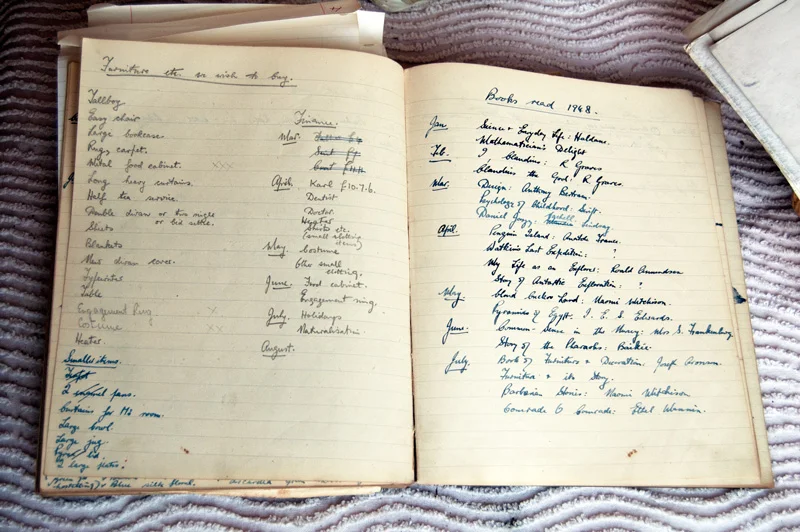 Furniture etc. we wish to buy.
Tallboy
Easy chair
Large bookcase
Rugs, carpet.
Metal food cabinet. xxx
Long heavy curtains.
Half tea service.
Double divan or two single
or bed settee.
Sheets
Blankets
New divan cover.
Typewriter
Table
Engagement Ring x
Costume xx
Heater.
Smaller items.
Teapot
2 enamel pans.
Curtains for H's room.
Large bowl
Large jug
2 large plates.
Finance.
Mar.
April. Karl £10.7.6.
Dentist
Doctor.
Heater
Shirts etc.
(small clothing
items)
May. Costume
Other small
clothing.
June. Food cabinet.
Engagement ring.
July. Holidays
Naturalisation
August.
Books read 1948.
Jan Science & Everyday Life: Haldane.
Mathematician's Delight
Feb. I Claudius: R Graves
Claudius the God: R Graves.
Mar. Design: Anthony Bertram.
Psychology of Childhood: Swift.
Daniel Jazz: Vachell Lindsay
April. Penguin Island: Anatole France.
Watkins Last Expedition: "
My Life as an Explorer: Roald Amundsen
Story of Antarctic Exploration: "
May. Naomi Mitchison.
Pyramids of Egypt: I. E. S. Edwards.
June. Common Sense in the Nursery: Mrs S. Frankenburg
Story of the Pharaohs: Baikie.
July. Book of Furniture & Decoration: Joseph Aronson.
Furniture & its Story.
Barbarian Stories: Naomi Mitchison
Comrade O Comrade: Ethel Mannin.